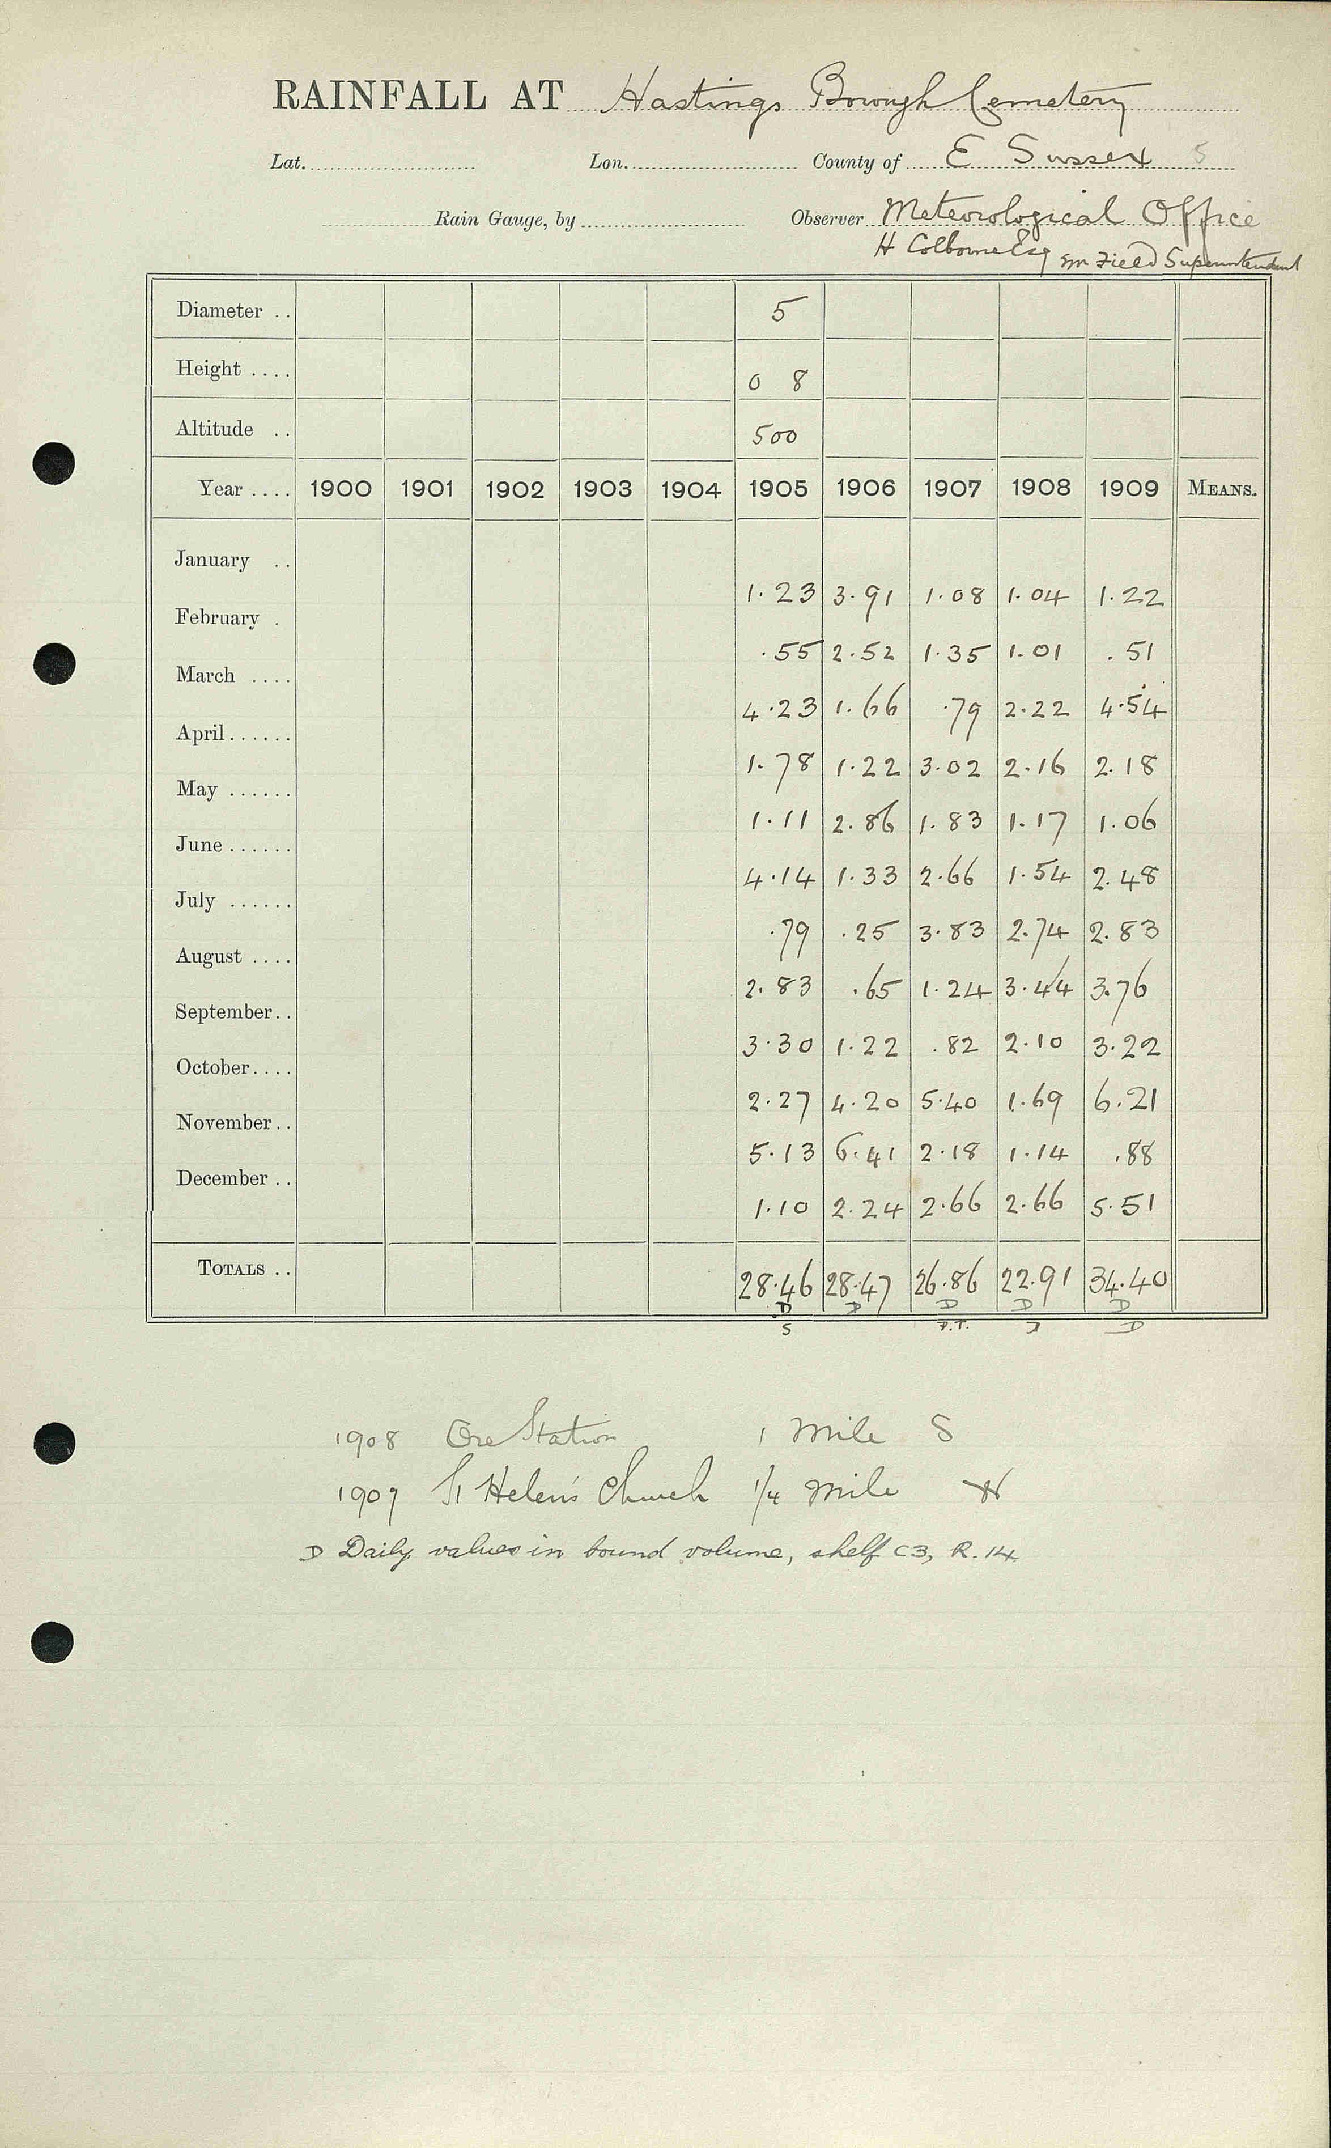 RAINFALL AT Hastings Borough Cemetery
Lat. Lon. County of E Sussex 5
Rain Gauge, by Observer Meteorological Office
H Colborne Esq Field Superintendent
Diameter .. 5
Height .... 0 8
Altitude .. 500
Year .... 1900 1901 1902 1903 1904 1905 1906 1907 1908 1909 MEANS.
January .. 1.23 3.91 1.08 1.04 1.22
February . .55 2.52 1.35 1.01 .51
March .... 4.23 1.66 .79 2.22 4.54
April ...... 1.78 1.22 3.02 2.16 2.18
May ...... 1.11 2.86 1.83 1.17 1.06
June ...... 4.14 1.33 2.66 1.54 2.48
July ...... .79 .25 3.83 2.74 2.83
August .... 2.83 .65 1.24 3.44 3.76
September.. 3.30 1.22 .82 2.10 3.22
October.... 2.27 4.20 5.40 1.69 6.21
November.. 5.13 6.41 2.18 1.14 .88
December .. 1.10 2.24 2.66 2.66 5.51
TOTALS .. 28.46 28.47 26.86 22.91 34.40
D D D D D
S P.T. D
1908 Ore Station 1 Mile S
1907 St Helen's Church 1/4 Mile W
D Daily values in bound volume, shelf C3, R.14